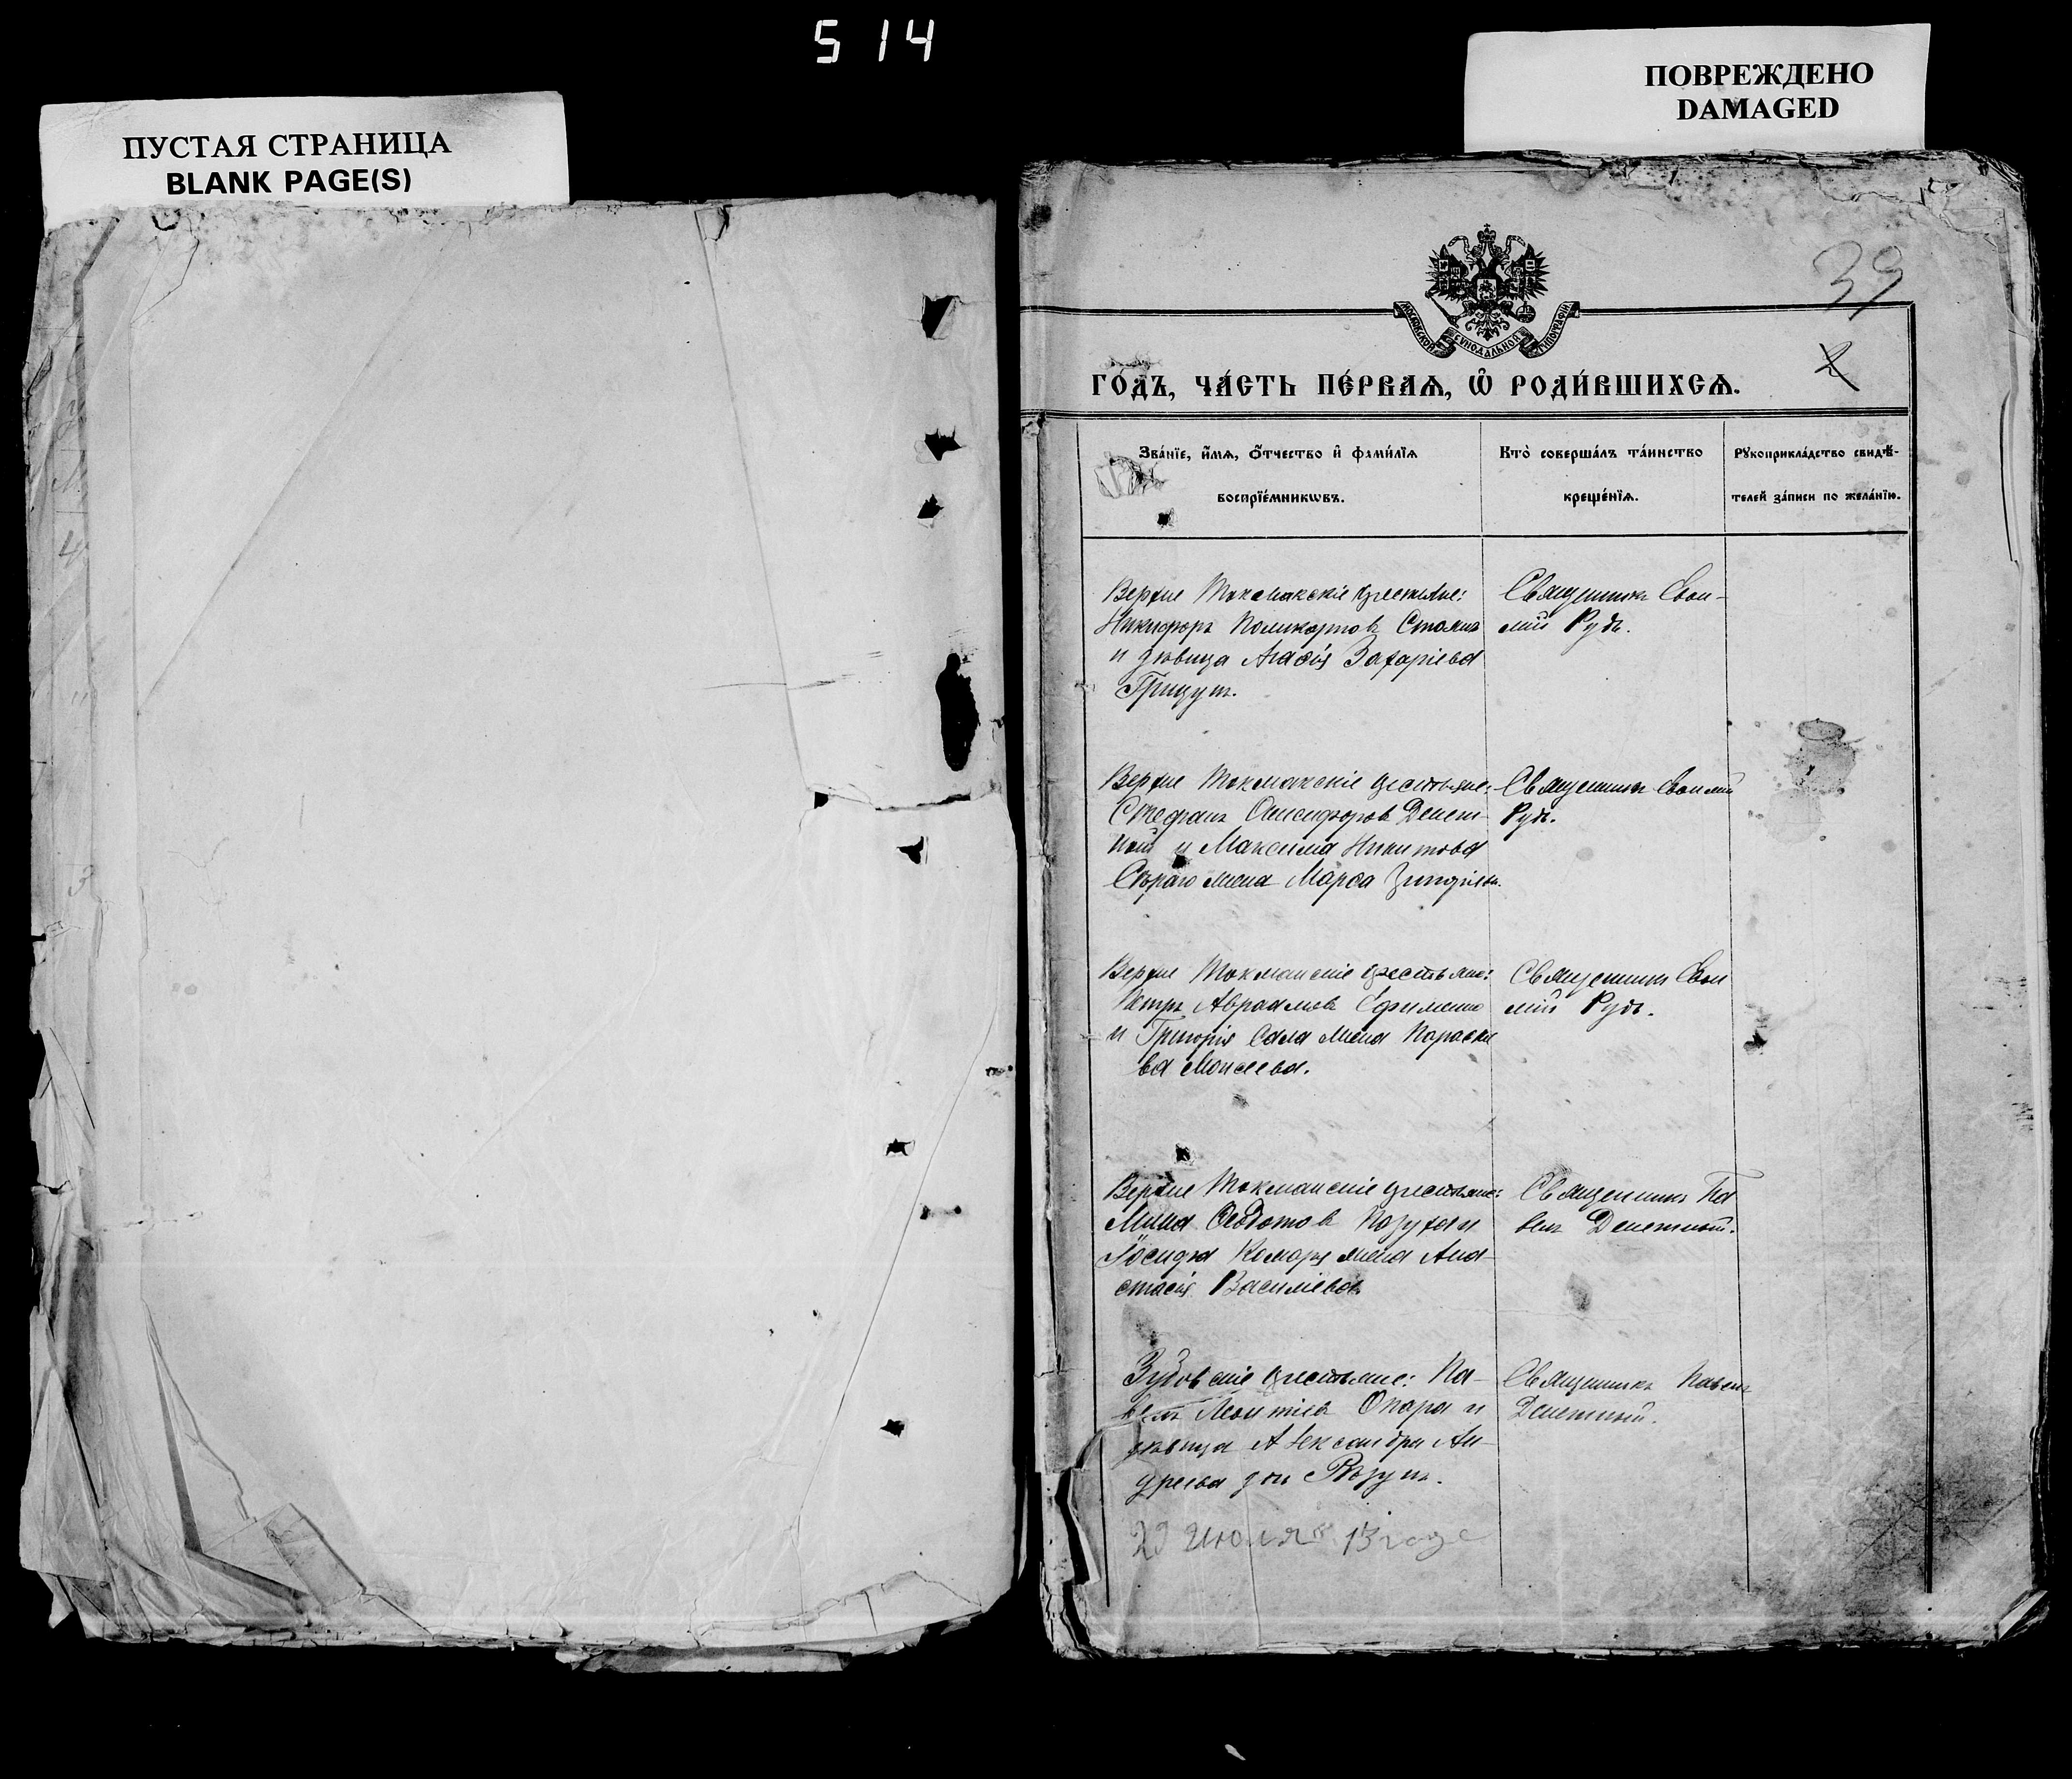 5 14
ПУСТАЯ СТРАНИЦА
BLANK PAGE(S)
ПОВРЕЖДЕНО
DAMAGED
39
МОСКОВСКОЙ СѴНОДАЛЬНОЙ ТИПОГРАФІИ
ГО́ДЪ, ЧА́СТЬ ПЕ́РВАѦ, Ѽ РОДИ́ВШИХСѦ.
Зва́нїе, и҆́мѧ, ѻ҆́тчество и҆ фами́лїѧ
воспрїе́мникѡвъ.
Кто̀ соверша́лъ та́инство
креще́нїѧ.
Рꙋкоприкла́дство свидѣ́-
телей за́писи по жела́нїю.
Верхне Токмакскіе крестьяне:
Никифоръ Поликарповъ
и дѣвица Агаѳія Захаріева
Грицунъ.
Священникъ Евѳи-
мій Рудь.
Верхне Токмакскіе крестьяне:
Стефанъ Онисифоровъ Денеж-
ный и Максима Никитова
Сѣраго жена Марѳа
Священникъ Евѳимій
Рудь.
Верхне Токмакскіе крестьяне:
Петръ Авраамовъ Ефименко
и Григорія Сала жена Параске
ва Моисеева.
Священникъ Евѳи
мій Рудь.
Верхне Токмакскіе крестьяне:
Мина Ѳеодотовъ и
Іосифа Комаря жена Ана-
стасія Василіева
Священникъ Па
велъ Денежный.
крестьяне: Па-
велъ Леонтіевъ Опара и
дѣвица Александра Ан-
дреева
Священникъ Павелъ
Денежный.
29 июля 13 года